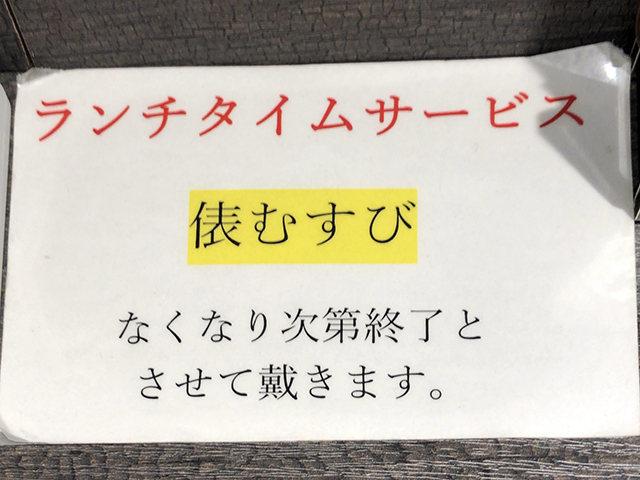 ランチタイムサービス
俵むすび
なくなり次第終了と
させて戴きます。